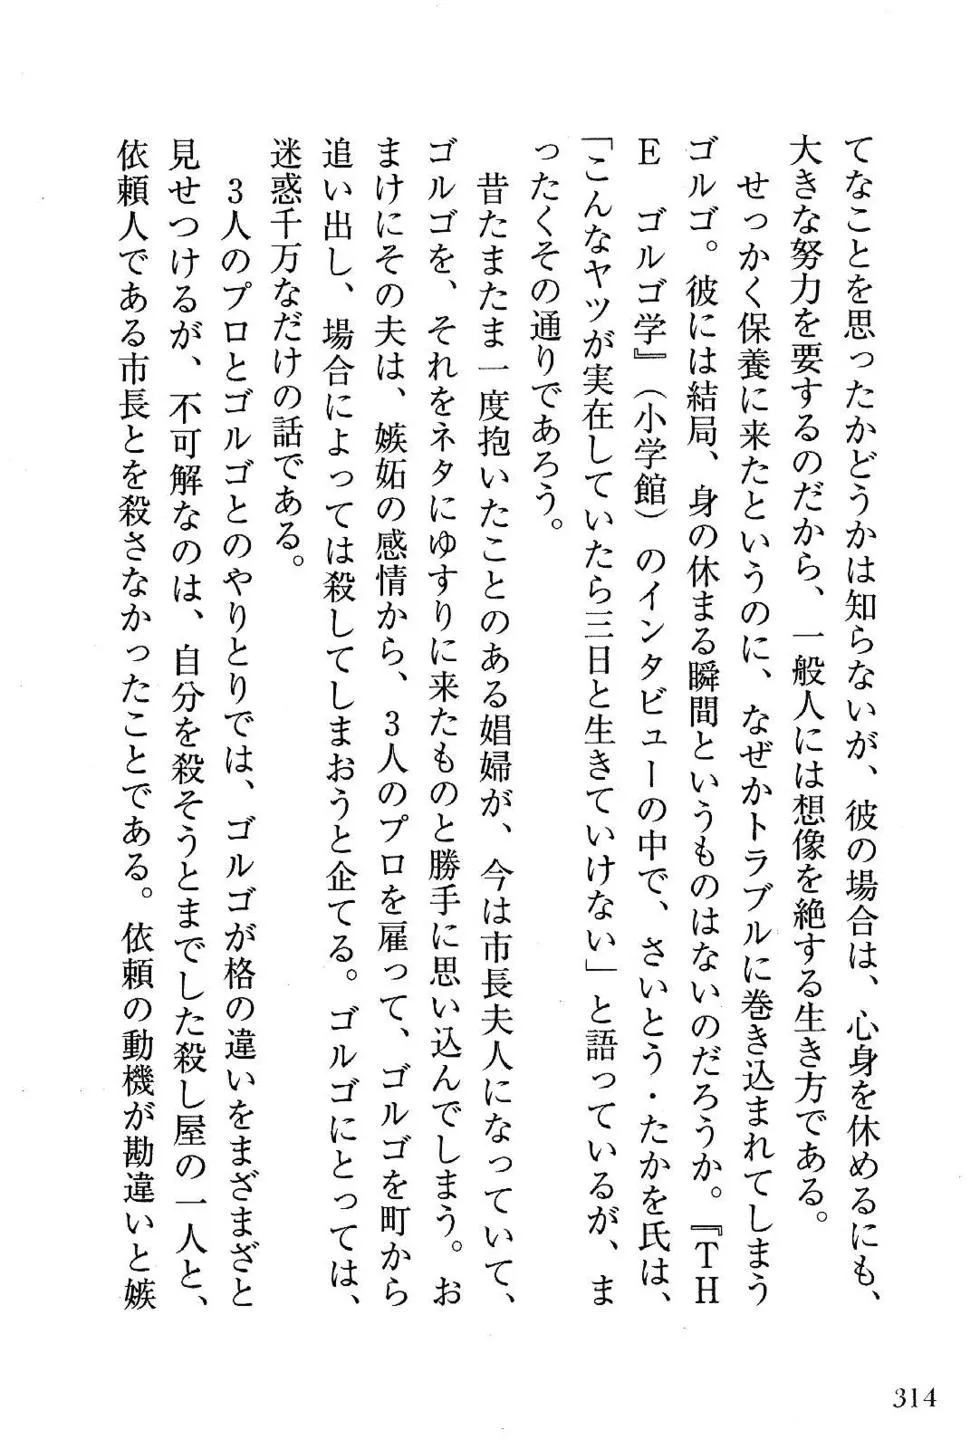 てなことを思ったかどうかは知らないが、彼の場合は、心身を休めるにも、
大きな努力を要するのだから、一般人には想像を絶する生き方である。
せっかく保養に来たというのに、なぜかトラブルに巻き込まれてしまう
ゴルゴ。彼には結局、身の休まる瞬間というものはないのだろうか。『TH
E ゴルゴ学』（小学館）のインタビューの中で、さいとう・たかを氏は、
「こんなヤツが実在していたら三日と生きていけない」と語っているが、ま
ったくその通りであろう。
昔たまたま一度抱いたことのある娼婦が、今は市長夫人になっていて、
ゴルゴを、それをネタにゆすりに来たものと勝手に思い込んでしまう。お
まけにその夫は、嫉妬の感情から、3人のプロを雇って、ゴルゴを町から
追い出し、場合によっては殺してしまおうと企てる。ゴルゴにとっては、
迷惑千万なだけの話である。
3人のプロとゴルゴとのやりとりでは、ゴルゴが格の違いをまざまざと
見せつけるが、不可解なのは、自分を殺そうとまでした殺し屋の一人と、
依頼人である市長とを殺さなかったことである。依頼の動機が勘違いと嫉
314